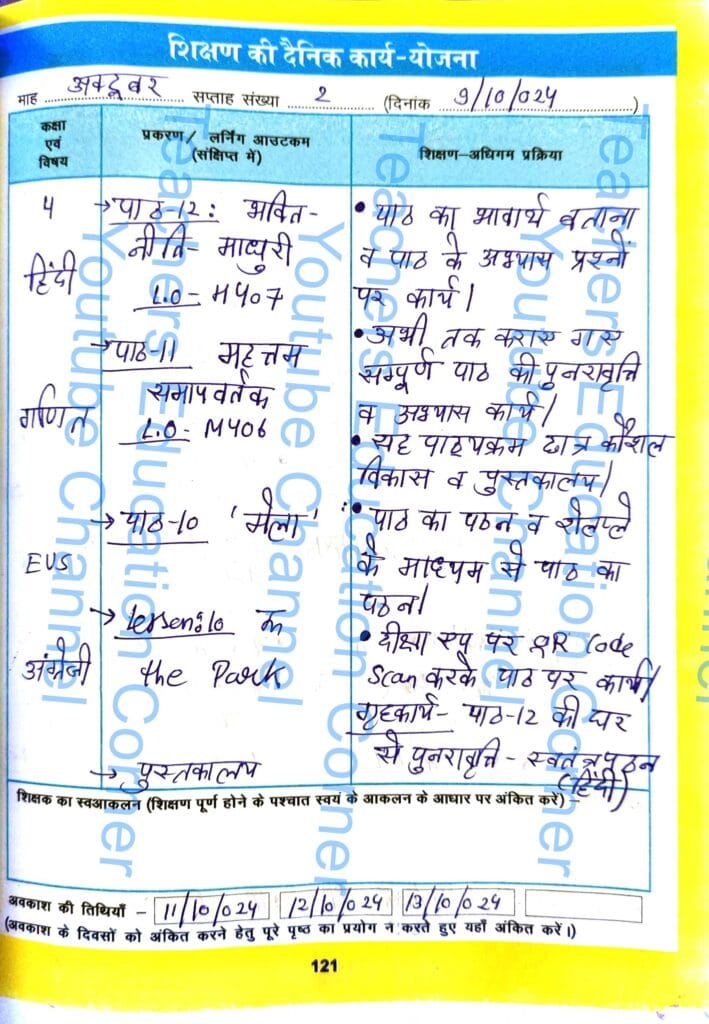 शिक्षण की दैनिक कार्य-योजना
माह अक्टूबर सप्ताह संख्या 2 (दिनांक 9/10/024)
कक्षा एवं विषय
प्रकरण/ लर्निंग आउटकम (संक्षिप्त में)
शिक्षण-अधिगम प्रक्रिया
4
हिंदी
→पाठ-12: भक्ति-
नीति- माधुरी
L.O- M407
• पाठ का भावार्थ बताना
व पाठ के अभ्यास प्रश्नों
पर कार्य।
गणित
→पाठ-11 महत्तम
समापवर्तक
L.O- M406
• अभी तक कराए गए
सम्पूर्ण पाठ की पुनरावृत्ति
व अभ्यास कार्य।
• यह पाठ्यक्रम छात्र कौशल
विकास व पुस्तकालय।
EVS
→पाठ-10 'मेला'
• पाठ का पठन व रोलप्ले
के माध्यम से पाठ का
पठन।
अंग्रेजी
→ lesson:10 In
the Park
• दीक्षा एप पर QR Code
Scan करके पाठ पर कार्य।
गृहकार्य- पाठ-12 की घर
से पुनरावृत्ति - स्वतंत्र पठन
(हिंदी)
→ पुस्तकालय
शिक्षक का स्वआकलन (शिक्षण पूर्ण होने के पश्चात स्वयं के आकलन के आधार पर अंकित करें) –
अवकाश की तिथियाँ – 11/10/024 12/10/024 13/10/024
(अवकाश के दिवसों को अंकित करने हेतु पूरे पृष्ठ का प्रयोग न करते हुए यहाँ अंकित करें।)
121
Teachers Education Corner
Youtube Channel
Teachers Education Corner
Youtube Channel